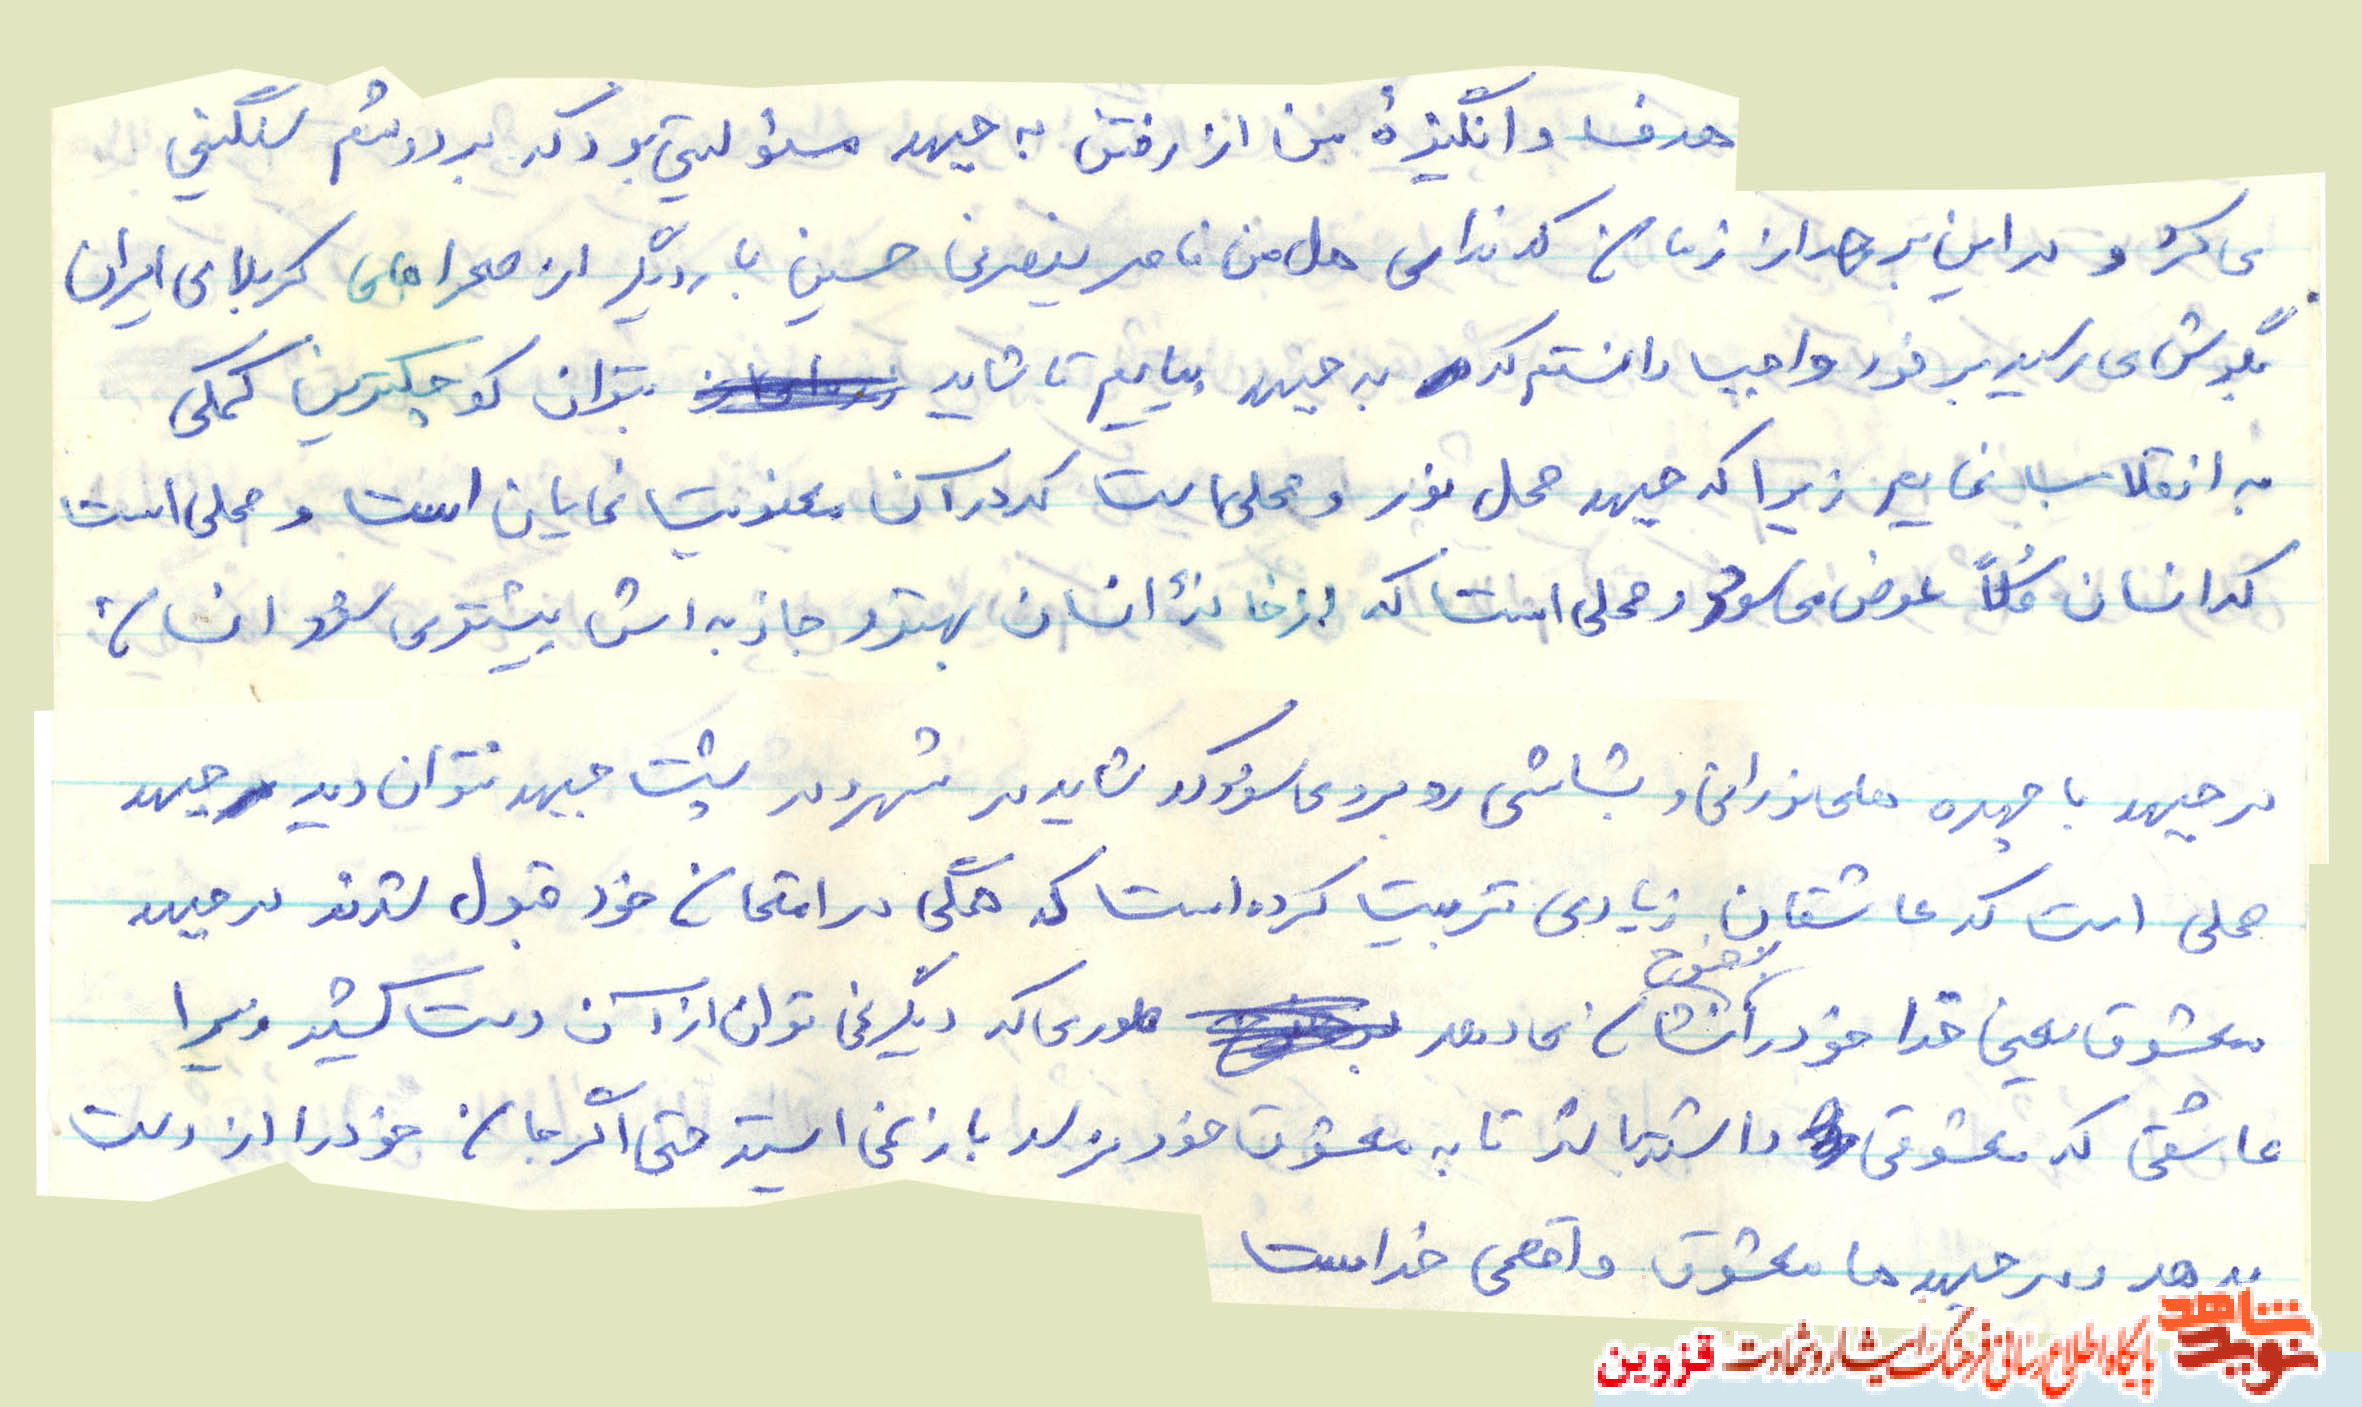 هدف و انگیزهٔ من از رفتن به جبهه مسئولیتی بود که بر دوشم سنگینی
می‌کرد و در این برهه از زمان که ندای هل من ناصر ینصرنی حسین بار دیگر از صحراهای کربلای ایران
بگوش می‌رسید بر خود واجب دانستم که به جبهه بیایم تا شاید بتوان کوچکترین کمکی
به انقلاب بنمایم زیرا که جبهه محل نور و محلی است که در آن معنویت نمایان است و محلی است
که انسان کلاً عوض می‌شود و محلی است که از خانهٔ انسان بهتر و جاذبه‌اش بیشتر می‌شود انسان
در جبهه با چهره های نورانی و بشاشی روبرو می‌شود که شاید در شهر و در پشت جبهه نتوان دید جبهه
محلی است که عاشقان زیادی تربیت کرده است که همگی در امتحان خود قبول شدند در جبهه
بوضوح
معشوق یعنی خدا خود را نشان می‌دهد طوری که دیگر نمی توان از آن دست کشید زیرا
عاشقی که معشوقی داشته باشد تا به معشوق خود نرسد باز نمی ایستد حتی اگر جان خود را از دست
بدهد و در جبهه ها معشوق واقعی خداست
نوید شاهد
پایگاه اطلاع رسانی فرهنگ ایثار و شهادت قزوین